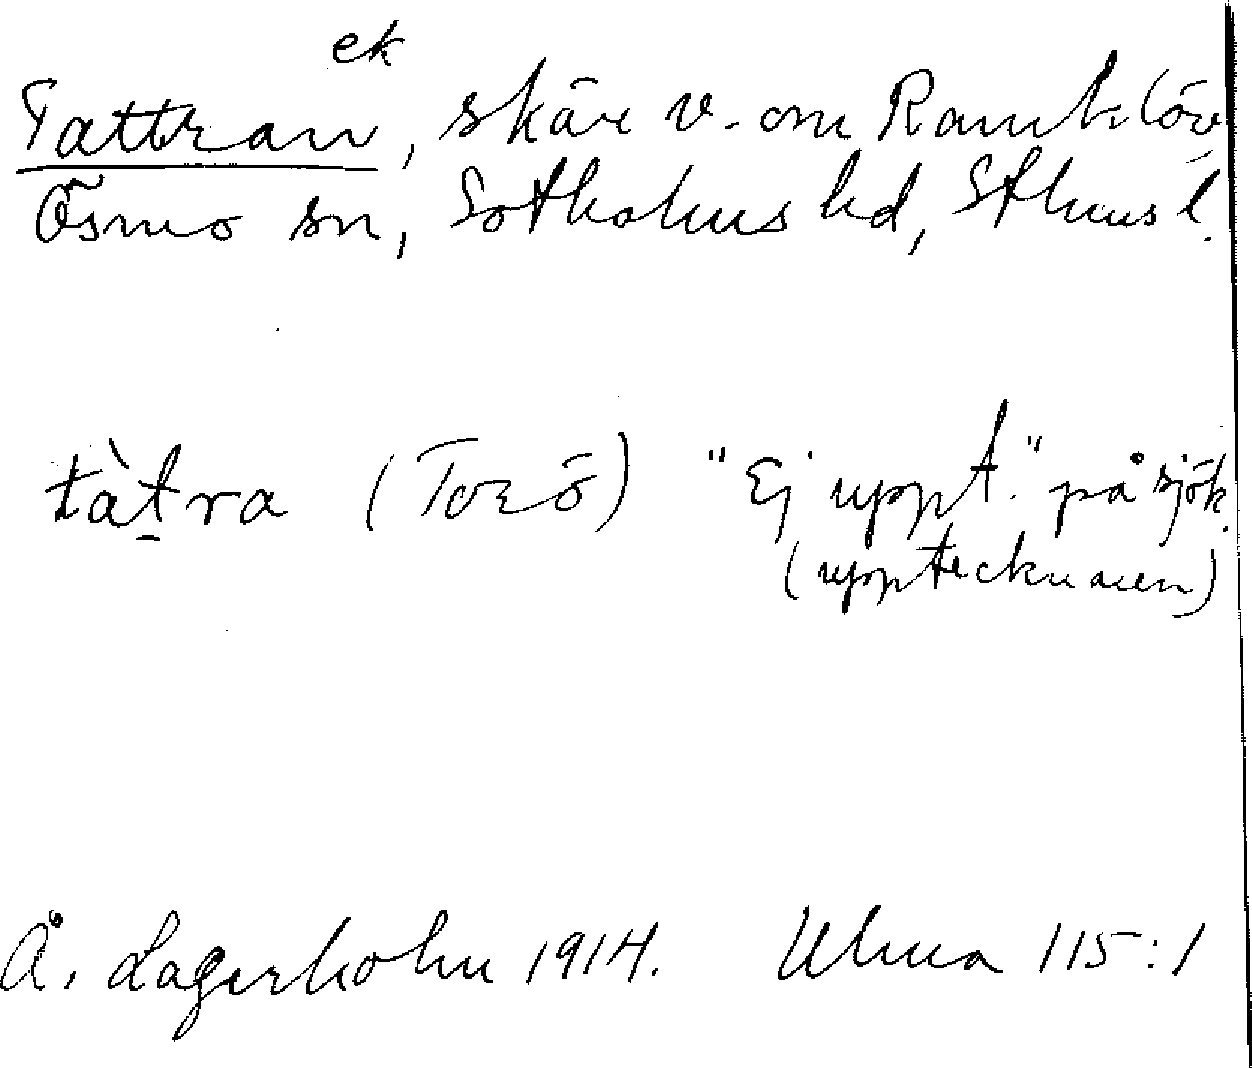 ek
Tattran, skär v. om Ramklöv
Ösmo sn, Sotholms hd, Sthms l.
tàt̲ra (Torö) "Ej uppt." på sjök.
(upptecknaren)
Å. Lagerholm 1914. Ulma 115:1